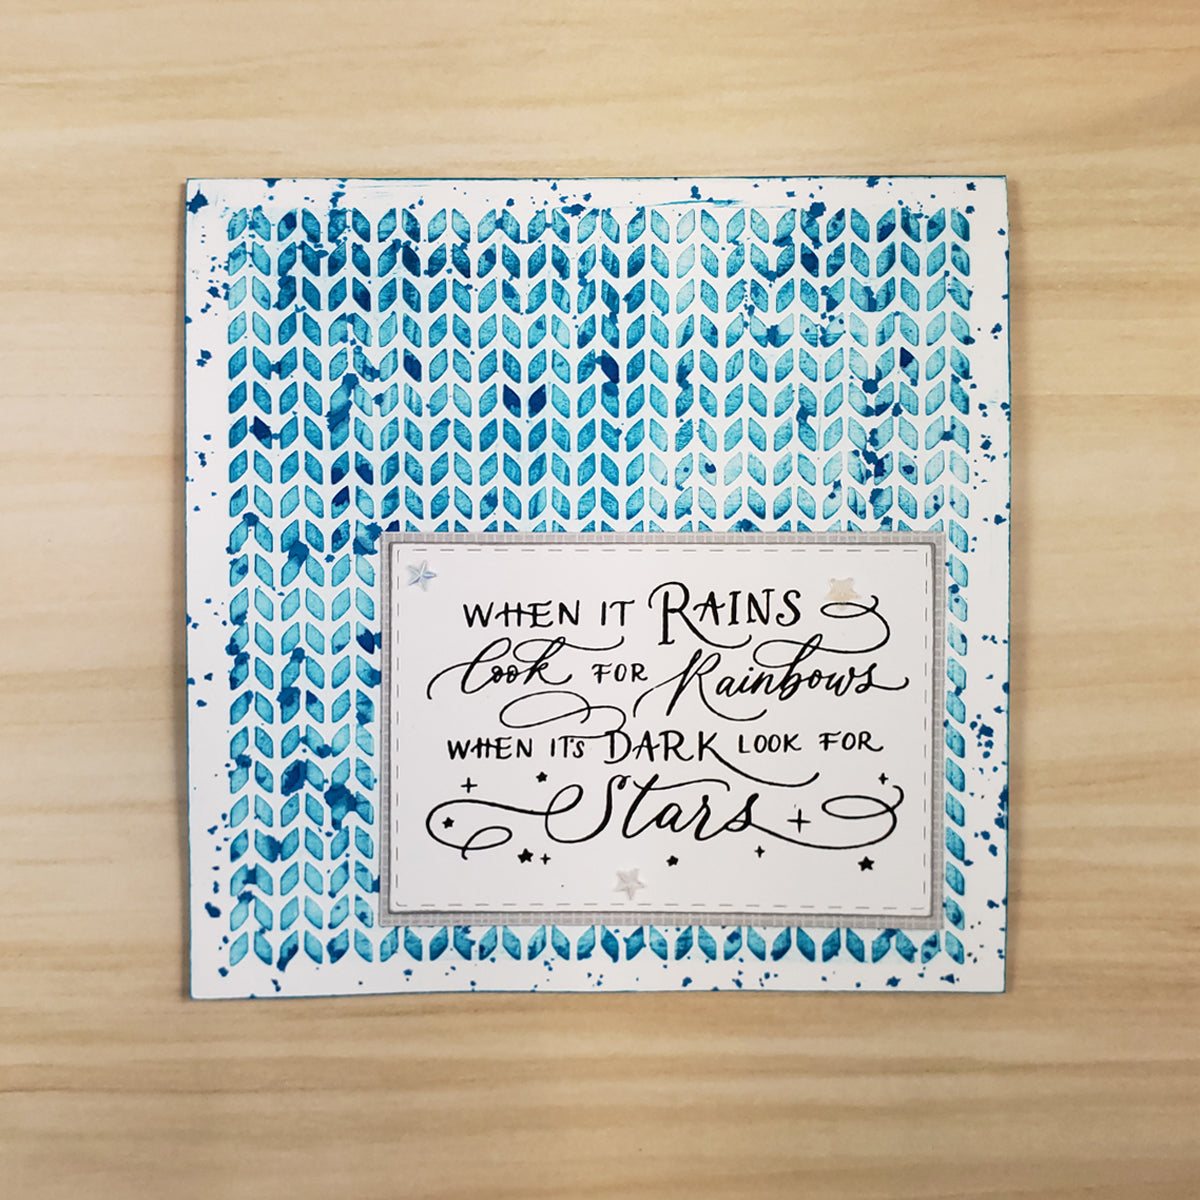 WHEN IT RAINS
look FOR Rainbows
WHEN IT'S DARK LOOK FOR
Stars